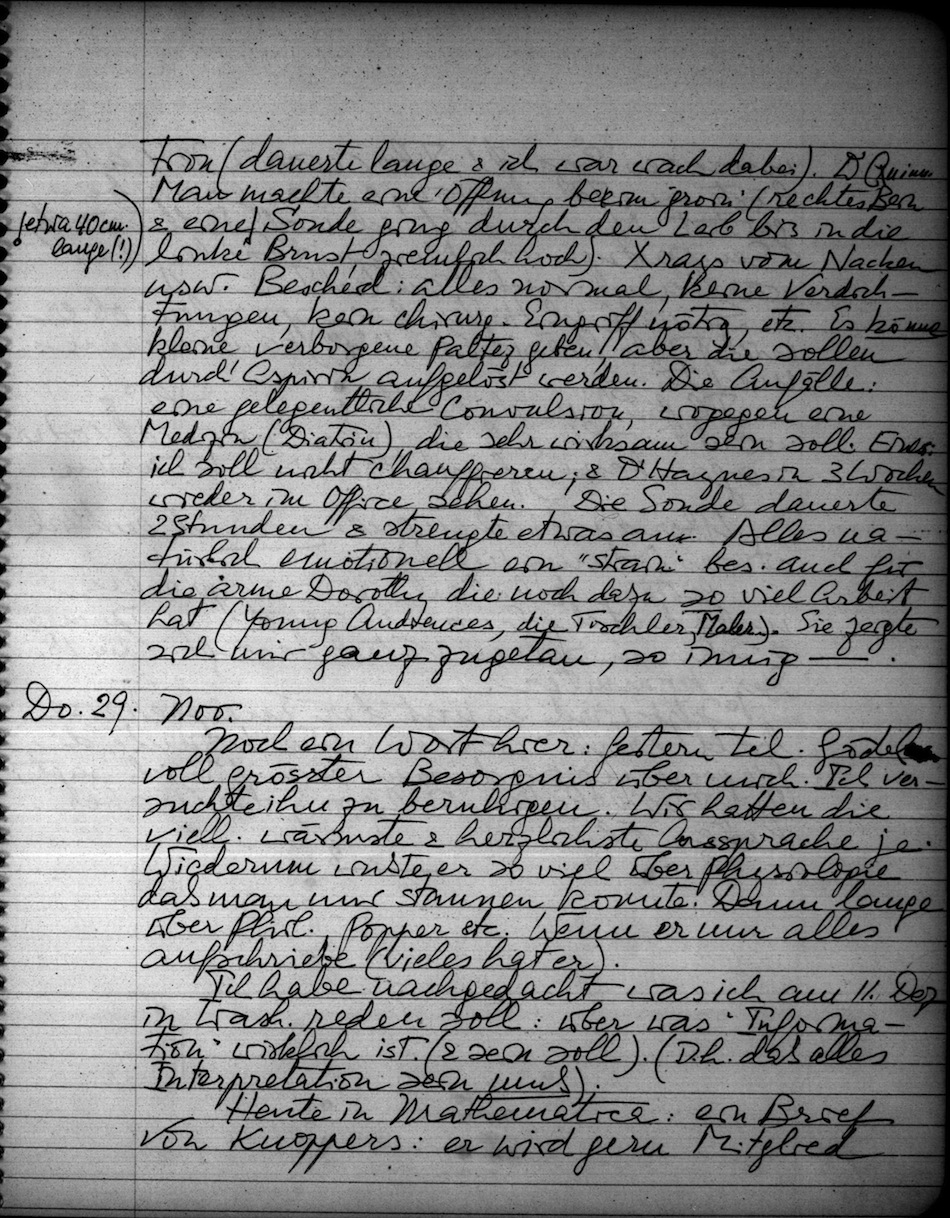 tion (dauerte lange & ich war wach dabei). Dr Quinn.
Man machte eine Öffnung beim groin (rechtes Bein
(etwa 40 cm. lange (!)) & eine Sonde ging durch den Leib bis in die
linke Brust, ziemlich hoch). Xrays vom Nacken
usw. Bescheid: alles normal, keine Verdich-
tungen, kein chirurg. Eingriff nötig, etc. Es könne
kleine verborgene geben, aber die sollen
durch Aspirin aufgelöst werden. Die Anfälle:
eine gelegentliche Convulsion, wogegen eine
Medizin (), die sehr wirksam sein soll.
ich soll nicht chauffieren, & Dr Haynes in 3 Wochen
wieder im Office sehen. Die Sonde dauerte
2 Stunden & strengte etwas an. Alles na-
türlich emotionell ein "strain" bes. auch für
die arme Dorothy die noch dazu so viel Arbeit
hat (Young Audiences, die Tischler, Maler). Sie zeigte
sich mir ganz zugetan, so innig —.
Do. 29. Nov.
Noch ein Wort hier: gestern tel. Gödel
voll grösster Besorgnis über mich. Ich ver-
suchte ihn zu beruhigen. Wir hatten die
viell. wärmste & herzlichste Aussprache je.
Wiederum wusste er so viel über Physiologie
das man nur staunen konnte. Dann lange
über Phil. Popper etc. Wenn er nur alles
aufschriebe (vieles hat er).
Ich habe nachgedacht was ich am 11. Dez
in Wash. reden soll: über was "Informa-
tion" wirklich ist. (& sein soll). (D.h. daß alles
Interpretation sein muß).
Heute in Mathematica: ein Brief
von Knoppers: er wird gern Mitglied